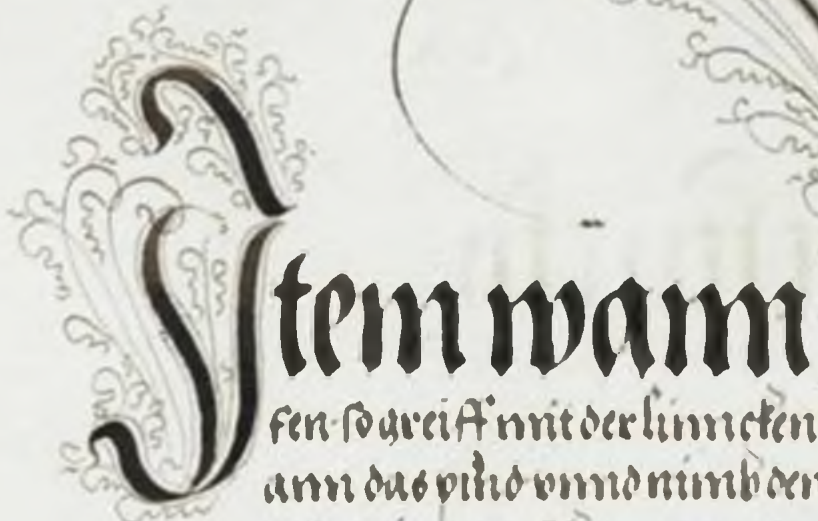 Item wann
fen so greiff mit der linncken
ann das pind vnnd nimb den